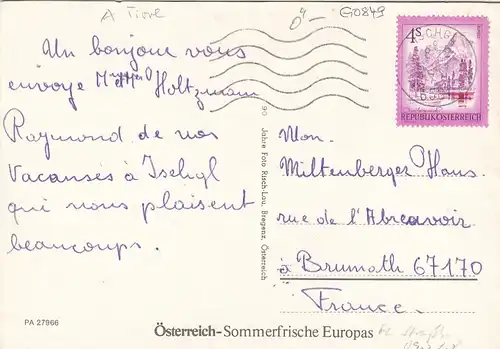 A Tirol
G0849
Un bonjour vous
envoye Mr et Mme Holtzmann
Raymond de nos
Vacansés à Ischgl
qui nous plaisent
beaucoups.
90 Jahre Foto Risch-Lau, Bregenz, Österreich
4S
REPUBLIK ÖSTERREICH
Mon.
Miltenberger Hans
rue de l'Abreavoir
à Brumath 67170
France.
PA 27966
Österreich-Sommerfrische Europas